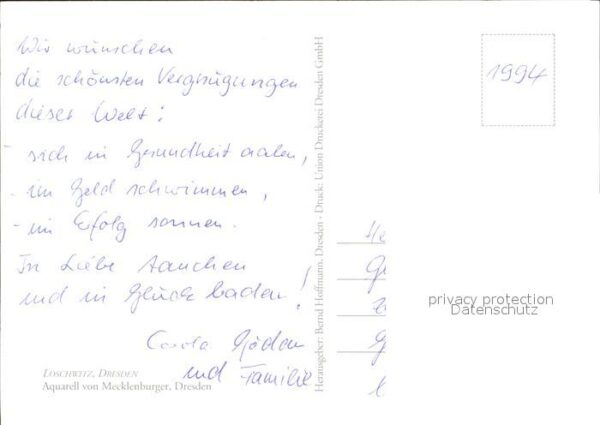 Wir wünschen
die schönsten Vergnügungen
dieser Welt:
- sich in Gesundheit aalen,
- im Geld schwimmen,
- im Erfolg sonnen.
In Liebe tauchen
und in Glück baden!
Carola
und Familie
LOSCHWITZ, DRESDEN
Aquarell von Mecklenburger, Dresden
Herausgeber: Bernd Hoffmann, Dresden - Druck: Union Druckerei Dresden GmbH
1994
privacy protection
Datenschutz